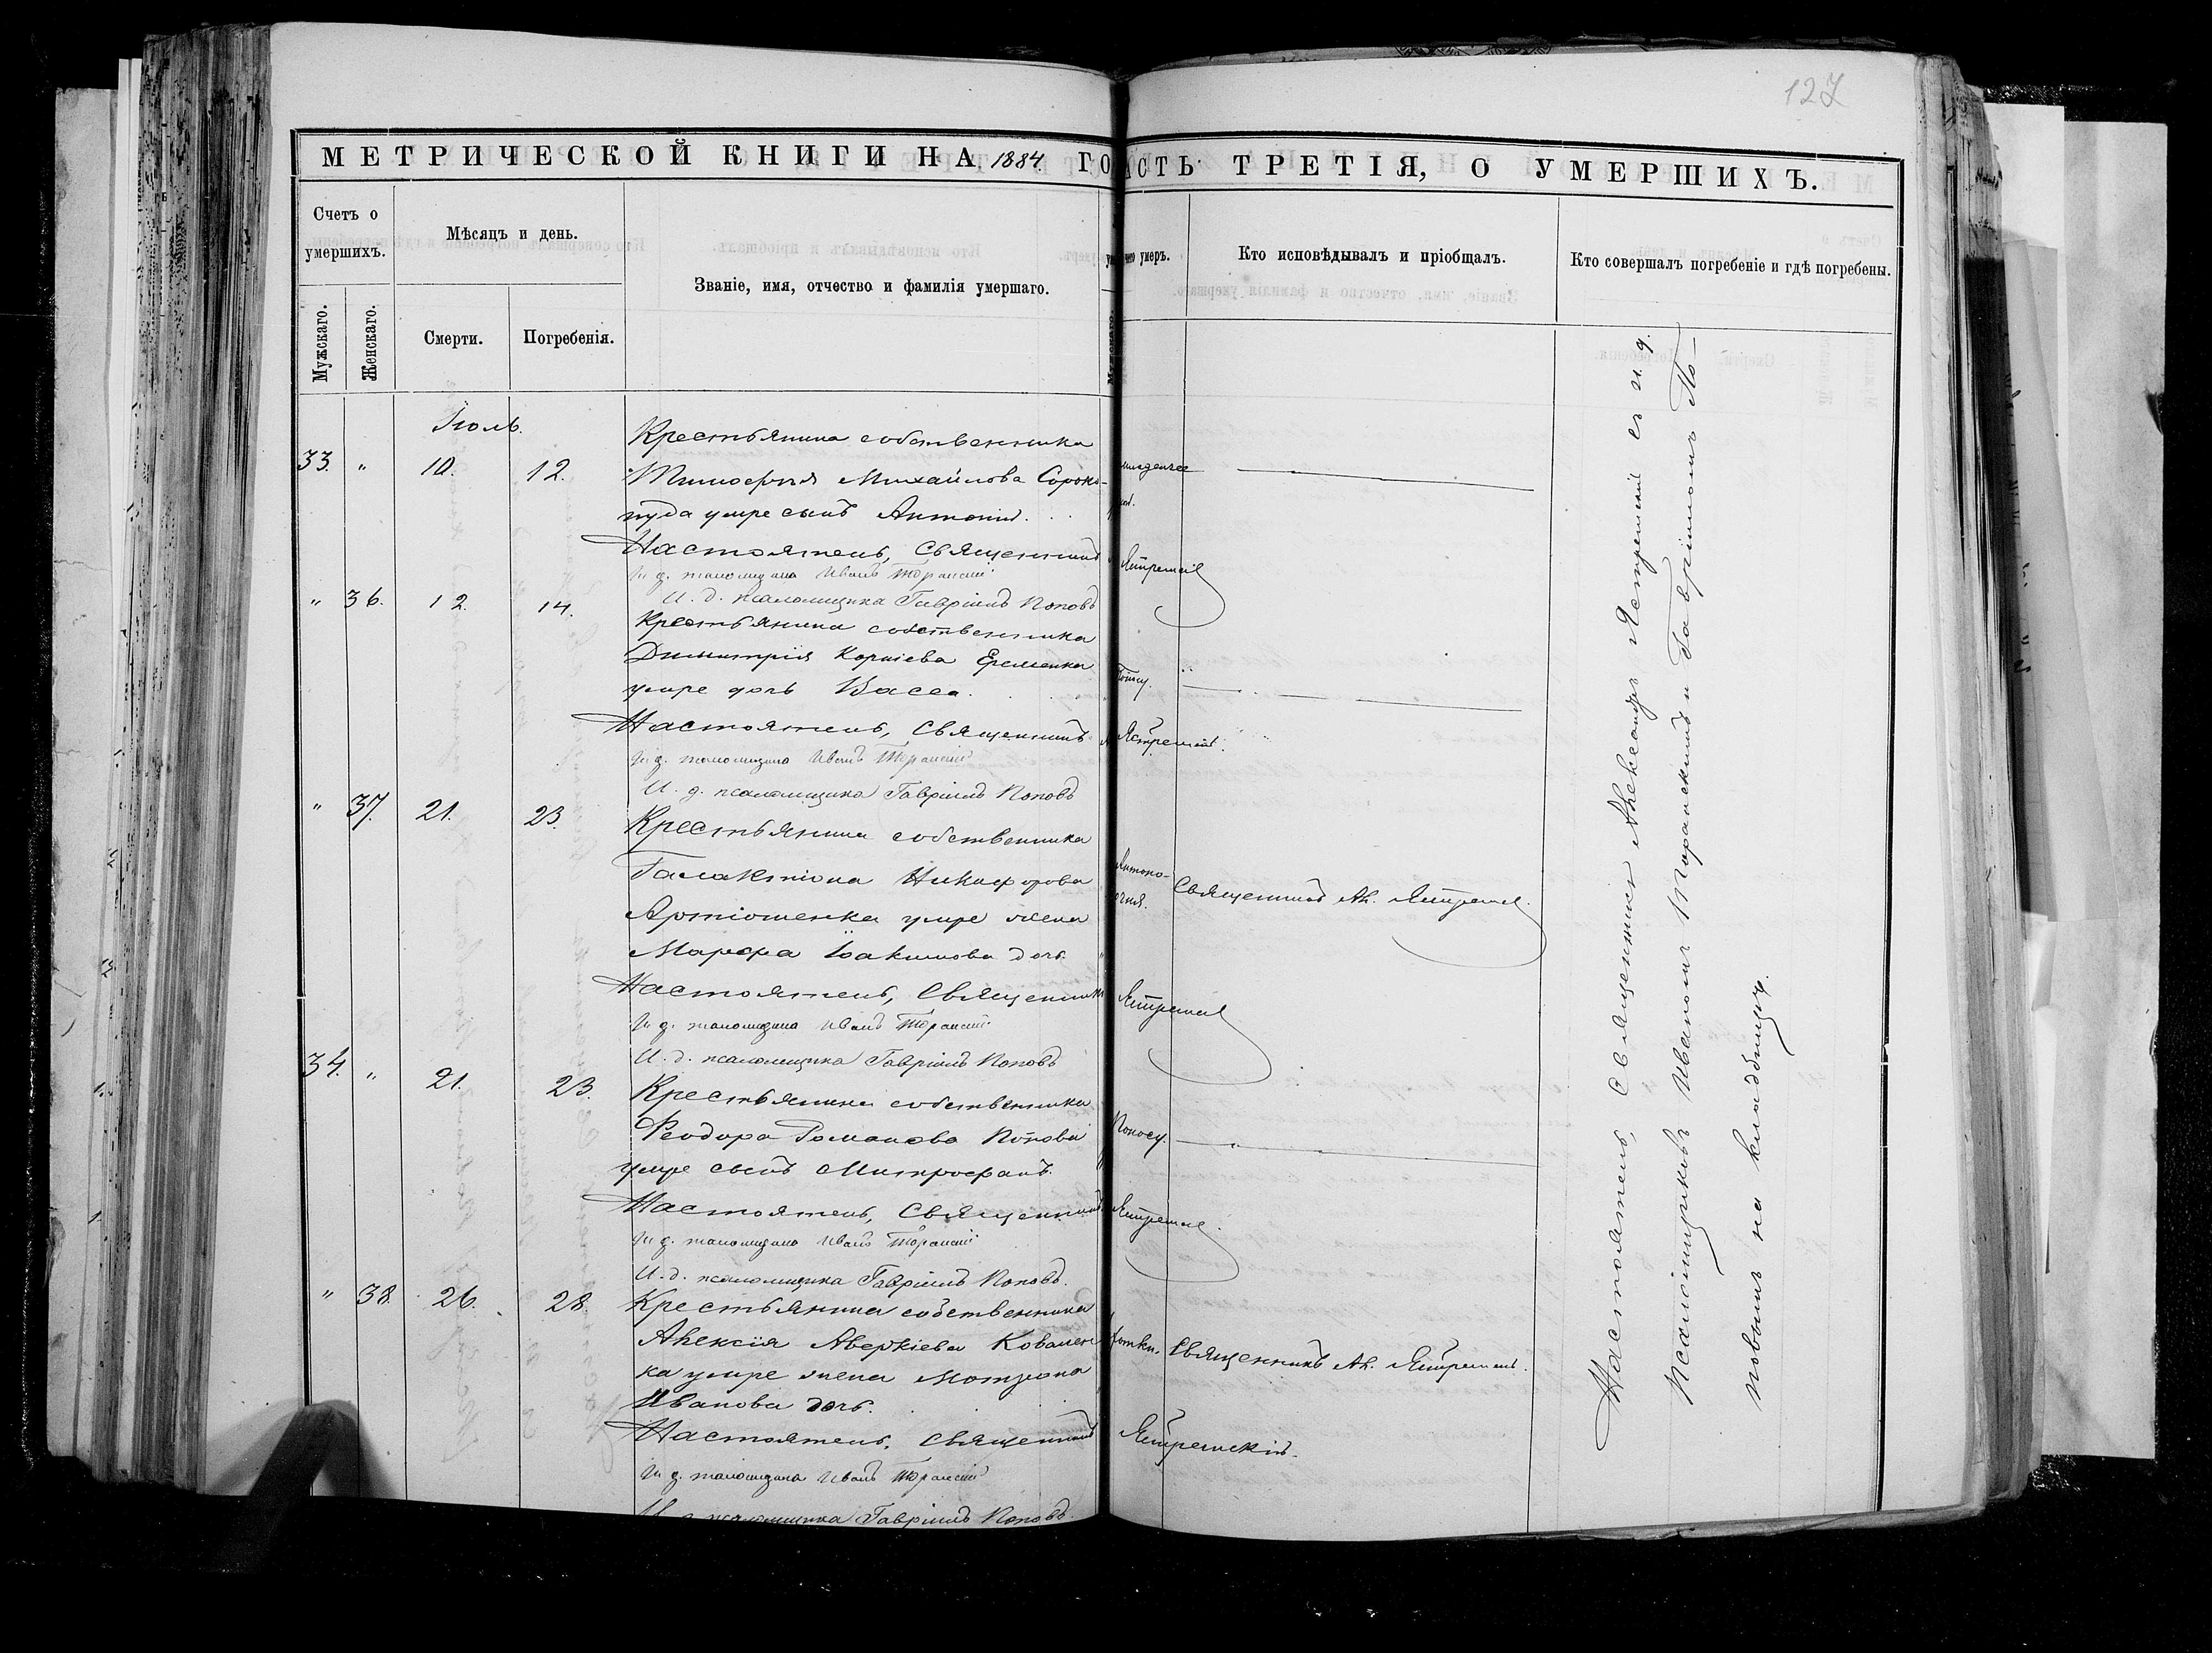 127
МЕТРИЧЕСКОЙ КНИГИ НА 1884. ГО
АСТЬ ТРЕТІЯ, О УМЕРШИХЪ.
Счетъ о умершихъ.
Мужскаго.
Женскаго.
Мѣсяцъ и день.
Смерти.
Погребенія.
Званіе, имя, отчество и фамилія умершаго.
чего умеръ.
Кто исповѣдывалъ и пріобщалъ.
Кто совершалъ погребеніе и гдѣ погребены.
Іюль.
33. " 10. 12.
Крестьянина собственника
Тимофея Михайлова Сороко-
пуда умре сынъ Антоній.
Настоятель, Священникъ Ястремскій
И. д. псаломщика Иванъ Торанскій
И. д. псаломщика Гавріилъ Поповъ
" 36. 12. 14.
Крестьянина собственника
Димитрія Корніева Еременка
умре дочь Васса.
Поносу.
Настоятель, Священникъ Ястремскій.
И. д. псаломщика Иванъ Торанскій
И. д. псаломщика Гавріилъ Поповъ
" 37. 21. 23.
Крестьянина собственника
Галактіона Никифорова
Артюшенка умре жена
Марфа Іоакимова дочь
Священникъ Ал. Ястремскій.
Настоятель, Священникъ Ястремскій
И. д. псаломщика Иванъ Торанскій
И. д. псаломщика Гавріилъ Поповъ
34. " 21. 23.
Крестьянина собственника
Феодора Романова Попова
умре сынъ Митрофанъ.
Поносу.
Настоятель, Священникъ Ястремскій.
И. д. псаломщика Иванъ Торанскій
И. д. псаломщика Гавріилъ Поповъ.
" 38. 26. 28.
Крестьянина собственника
Алексія Аверкіева Ковален
ка умре жена Мотрона
Иванова дочь.
Священникъ Ал. Ястремскій.
Настоятель, Священникъ Ястремскій.
И. д. псаломщика Иванъ Торанскій
И. д. псаломщика Гавріилъ Поповъ.
Настоятель, Священникъ Александръ Ястремскій съ и. д.
Псаломщиковъ Иваномъ Торанскимъ и Гавріиломъ По-
повымъ на кладбищѣ.